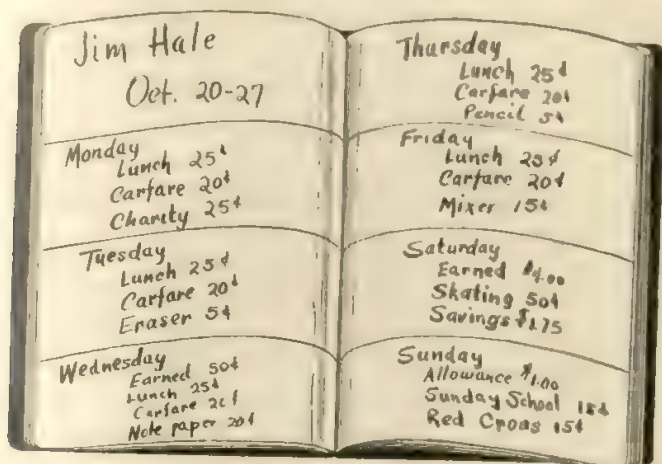 Jim Hale
Oct. 20-27
Monday
Lunch 25¢
Carfare 20¢
Charity 25¢
Tuesday
Lunch 25¢
Carfare 20¢
Eraser 5¢
Wednesday
Earned 50¢
Lunch 25¢
Carfare 20¢
Note paper 20¢
Thursday
Lunch 25¢
Carfare 20¢
Pencil 5¢
Friday
Lunch 25¢
Carfare 20¢
Mixer 15¢
Saturday
Earned $4.00
Skating 50¢
Savings $1.75
Sunday
Allowance $1.00
Sunday School 15¢
Red Cross 15¢